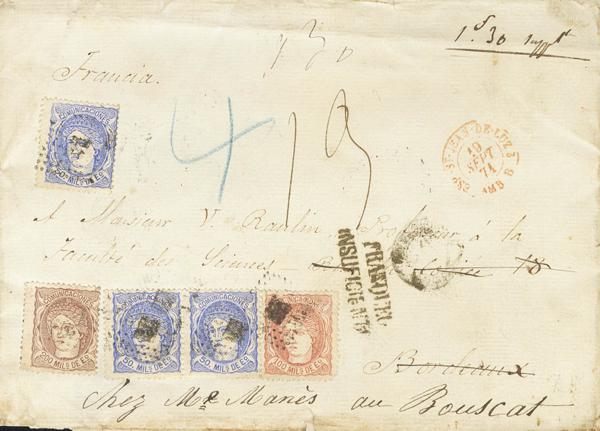 1 30
1f. 30 suppt
Francia.
4
19
COMUNICACIONES
50 MILS DE ES.
ST-JEAN-DE-LUZ
19
SEPT
71
AMB B
A Monsieur V. Raulin, Professeur à la
Faculté des Sciences 18
FRANQUEO
INSUFICIENTE
COMUNICACIONES
200 MILS DE ES.
COMUNICACIONES
50 MILS DE ES.
COMUNICACIONES
50 MILS DE ES.
COMUNICACIONES
100 MILS DE ES.
Bordeaux
Chez Mr Manès au Bouscat